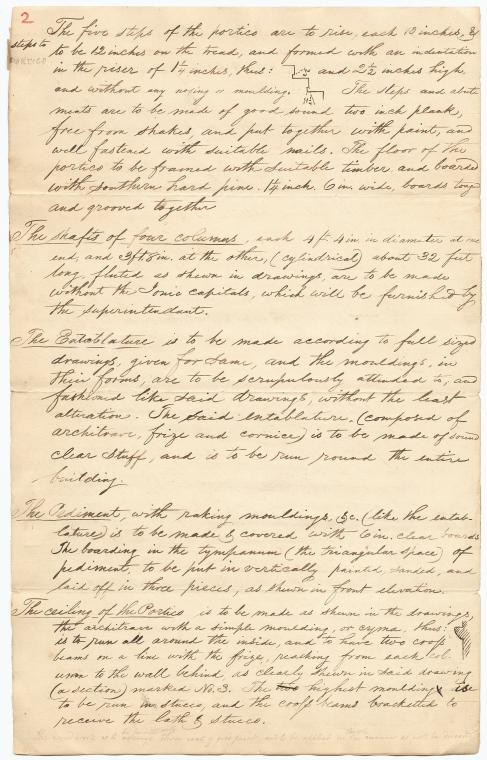 2
The five steps of the portico are to rise, each 10 inches, &
steps to
to be 12 inches on the tread, and formed with an indentation
in the riser of 1¼ inches, thus: and 2½ inches high
and without any nosing or moulding. The steps and abut
ments are to be made of good sound two inch plank,
free from shakes, and put together with paint, and
well fastened with suitable nails. The floor of the
portico to be framed with suitable timber and boarded
with southern hard pine. 1¼ inch. 6 in. wide, boards tong
and grooved together
The shafts of four columns, each 4 ft. 4 in. in diameter at one
end, and 3 ft 8 in. at the other, (cylindrical) about 32 feet
long, fluted as shewn in drawings, are to be made
without the Ionic capitals, which will be furnished by
the superintendant.
The Entablature is to be made according to full sized
drawings, given for same, and the mouldings, in
their forms, are to be scrupulously attended to, and
fashioned like said drawings, without the least
alteration. The said entablature, (composed of
architrave, frize and cornice) is to be made of sound
clear stuff, and is to be run round the entire
building.
The Pediment, with raking mouldings, &c. (like the entab-
lature) is to be made & covered with 6 in. clear boards
The boarding in the tympanum (the triangular space) of
pediment, to be put in vertically painted, sanded, and
laid off in three pieces, as shewn in front elevation.
The ceiling of the Portico is to be made as shewn in the drawings,
the architrave with a simple moulding, or cyma, thus:
is to run all around the inside, and to have two cross
beams on a line with the frize, reaching from each col-
umn to the wall behind, as clearly shewn in said drawing
(a section) marked No. 3. The two highest moulding is
to be run in stucco, and the cross beams bracketted to
receive the lath & stucco.